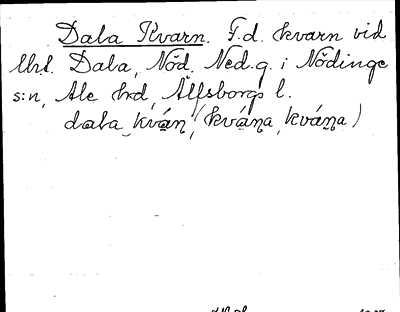 Dala Kvarn. F.d. kvarn vid
Dala, Nöd. Ned.g. i Nödinge
s:n, Ale hd, Älfsborgs l.
dala kván, (kvána, kvána)